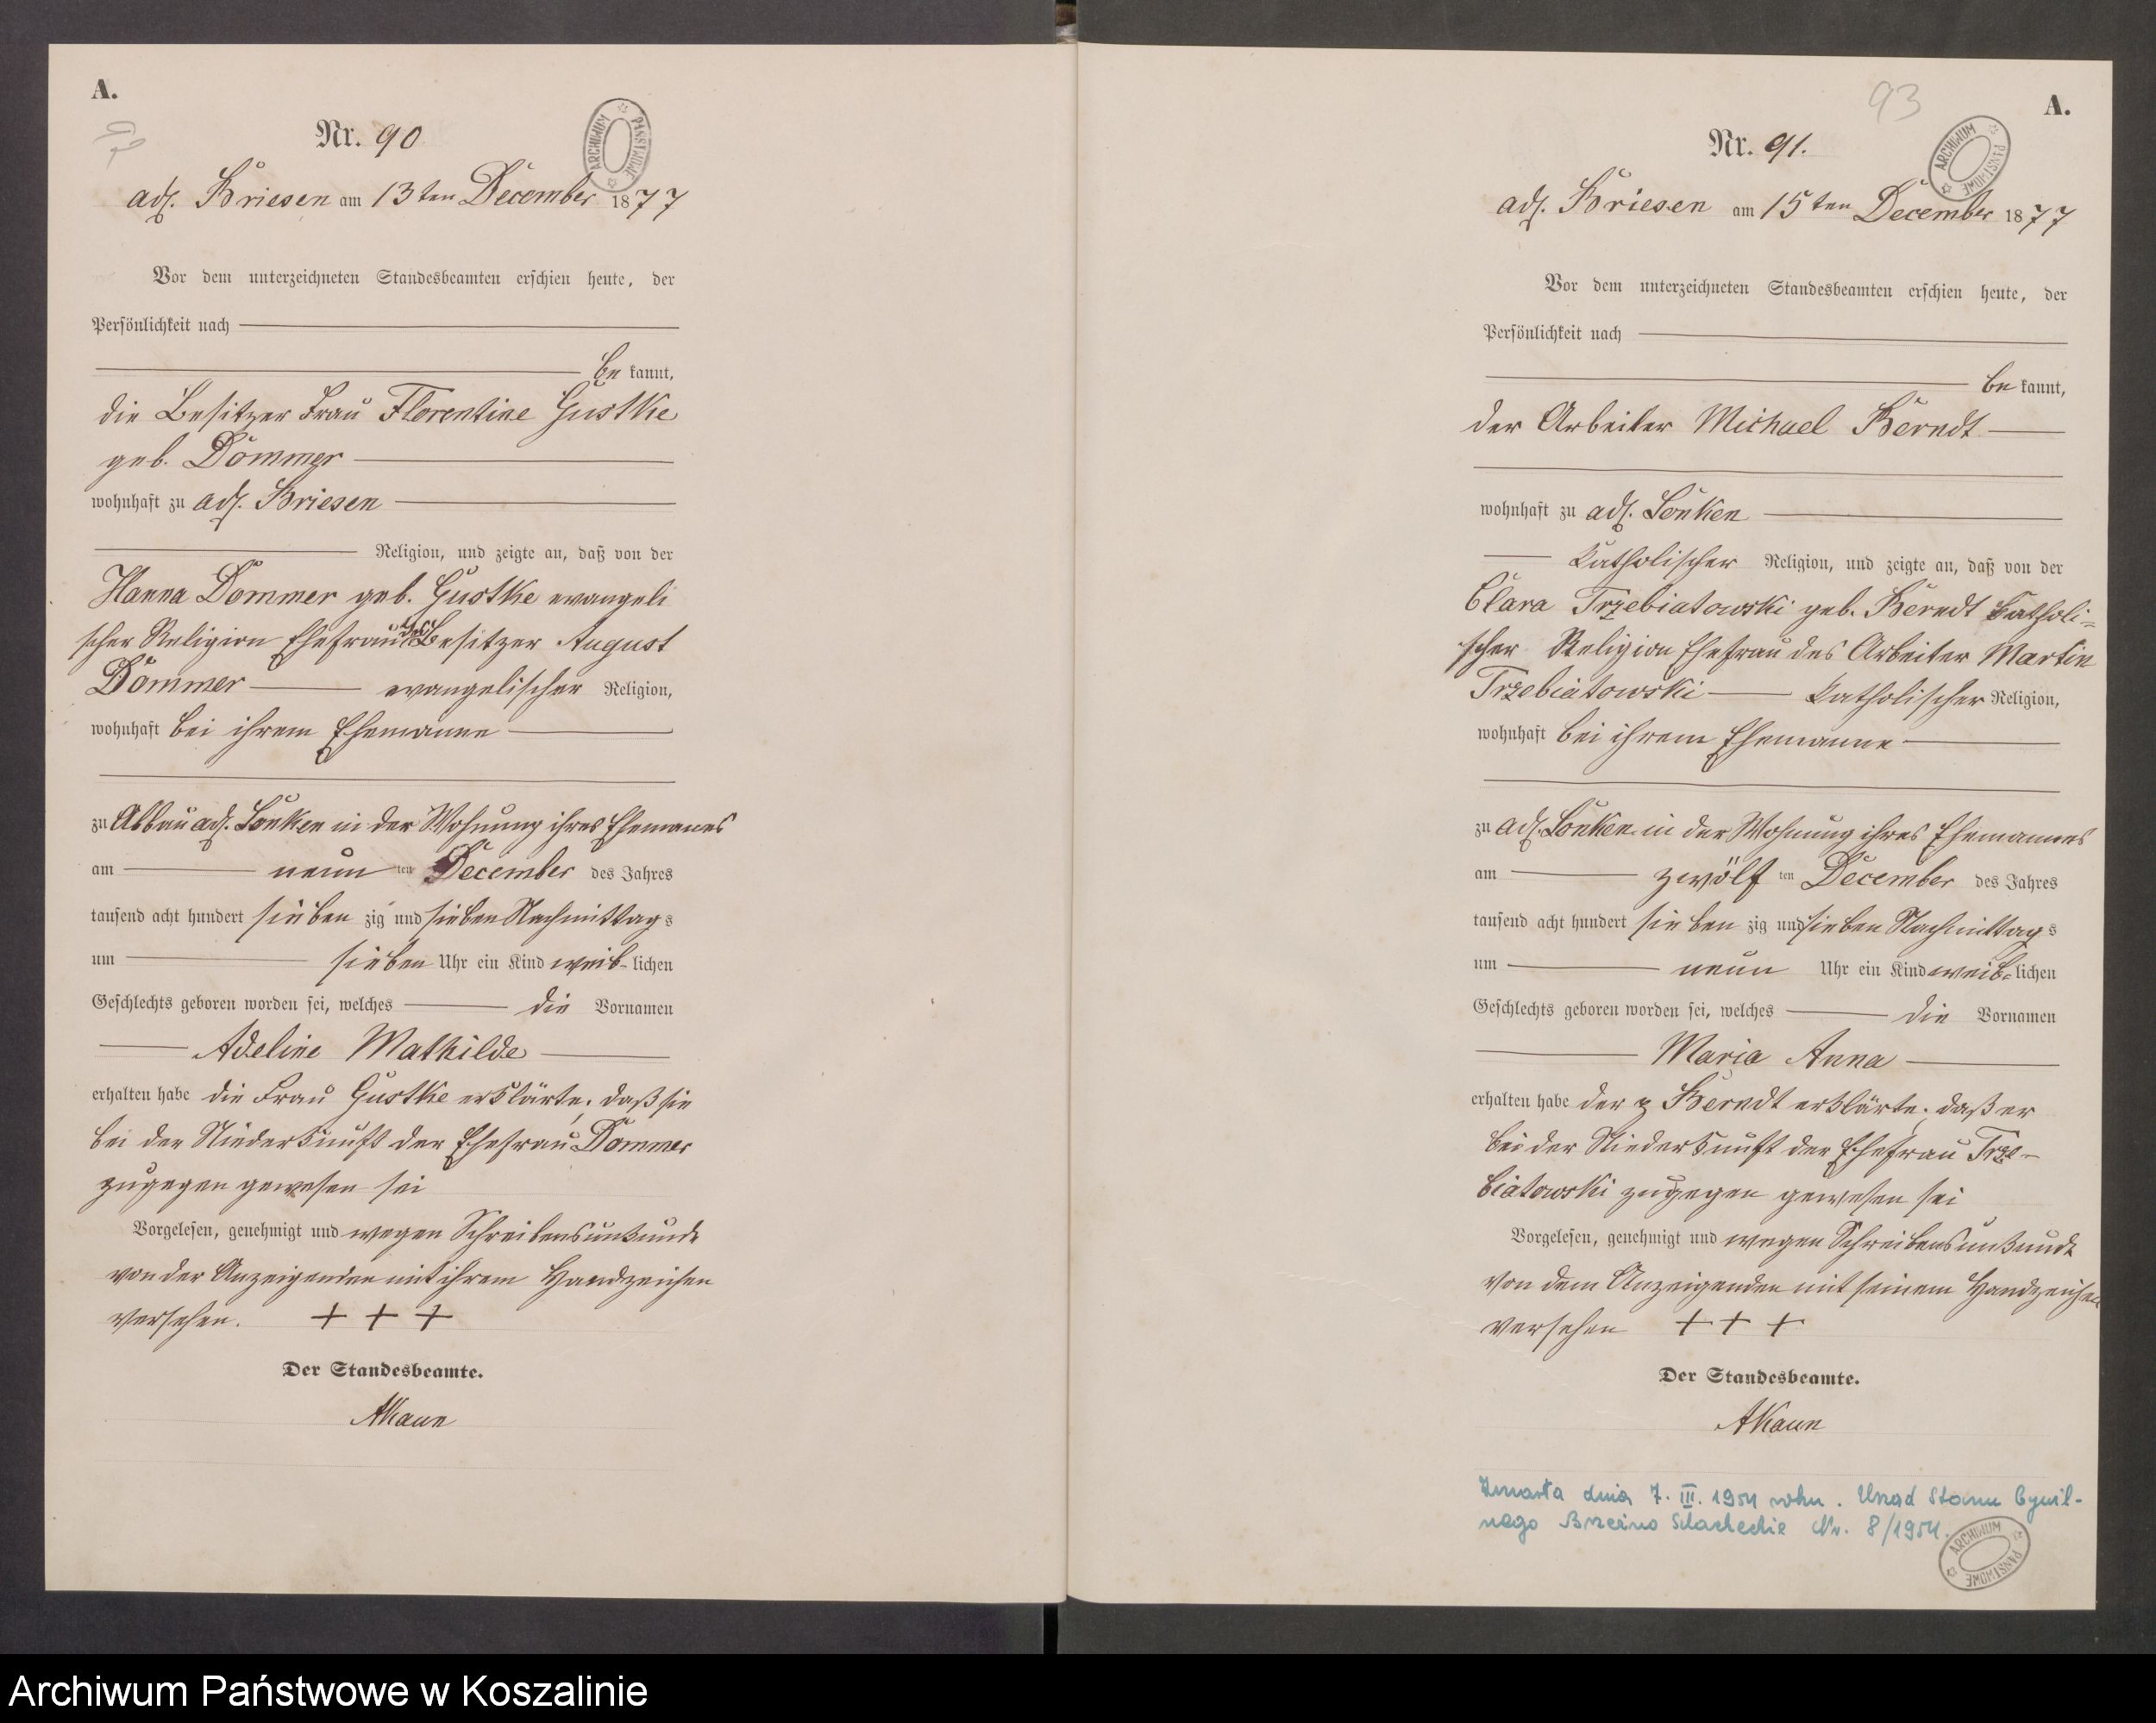 A.
Nr. 90
ARCHIWUM PAŃSTWOWE
adl. Briesen am 13ten December 1877
Vor dem unterzeichneten Standesbeamten erschien heute, der
Persönlichkeit nach
be kannt,
die Besitzer Frau Florentine Gustke
geb. Dommer
wohnhaft zu adl. Briesen
Religion, und zeigte an, daß von der
Hanna Dommer geb. Gustke evangeli
scher Religion Ehefrau des Besitzer August
Dommer evangelischer Religion,
wohnhaft bei ihrem Ehemanne
zu Abbau adl. Lonken in der Wohnung ihres Ehemanes
am neun ten December des Jahres
tausend acht hundert sieben zig und sieben Nachmittag s
um sieben Uhr ein Kind weib-lichen
Geschlechts geboren worden sei, welches die Vornamen
Adeline Mathilde
erhalten habe die Frau Gustke erklärte, daß sie
bei der Niederkunft der Ehefrau Dommer
zugegen gewesen sei
Vorgelesen, genehmigt und wegen Schreibensunkunde
von der Anzeigenden mit ihrem Handzeichen
versehen. + + +
Der Standesbeamte.
AKaun
93
A.
Nr. 91.
ARCHIWUM PAŃSTWOWE
adl. Briesen am 15ten December 1877
Vor dem unterzeichneten Standesbeamten erschien heute, der
Persönlichkeit nach
be kannt,
der Arbeiter Michael Berndt
wohnhaft zu adl. Lonken
katholischer Religion, und zeigte an, daß von der
Clara Trzebiatowski geb. Berndt katholi=
scher Religion Ehefrau des Arbeiter Martin
Trzebiatowski katholischer Religion,
wohnhaft bei ihrem Ehemanne
zu adl. Lonken in der Wohnung ihres Ehemannes
am zwölf ten December des Jahres
tausend acht hundert sieben zig und sieben Nachmittag s
um neun Uhr ein Kind weib=lichen
Geschlechts geboren worden sei, welches die Vornamen
Maria Anna
erhalten habe der Berndt erklärte, daß er
bei der Niederkunft der Ehefrau Trze-
biatowski zugegen gewesen sei
Vorgelesen, genehmigt und wegen Schreibensunkunde
von dem Anzeigenden mit seinem Handzeichen
versehen + + +
Der Standesbeamte.
AKaun
Zmarła dnia 7. III. 1954 roku. Urząd Stanu Cywil-
nego Brzeźno Szlacheckie Nr. 8/1954.
ARCHIWUM PAŃSTWOWE
Archiwum Państwowe w Koszalinie